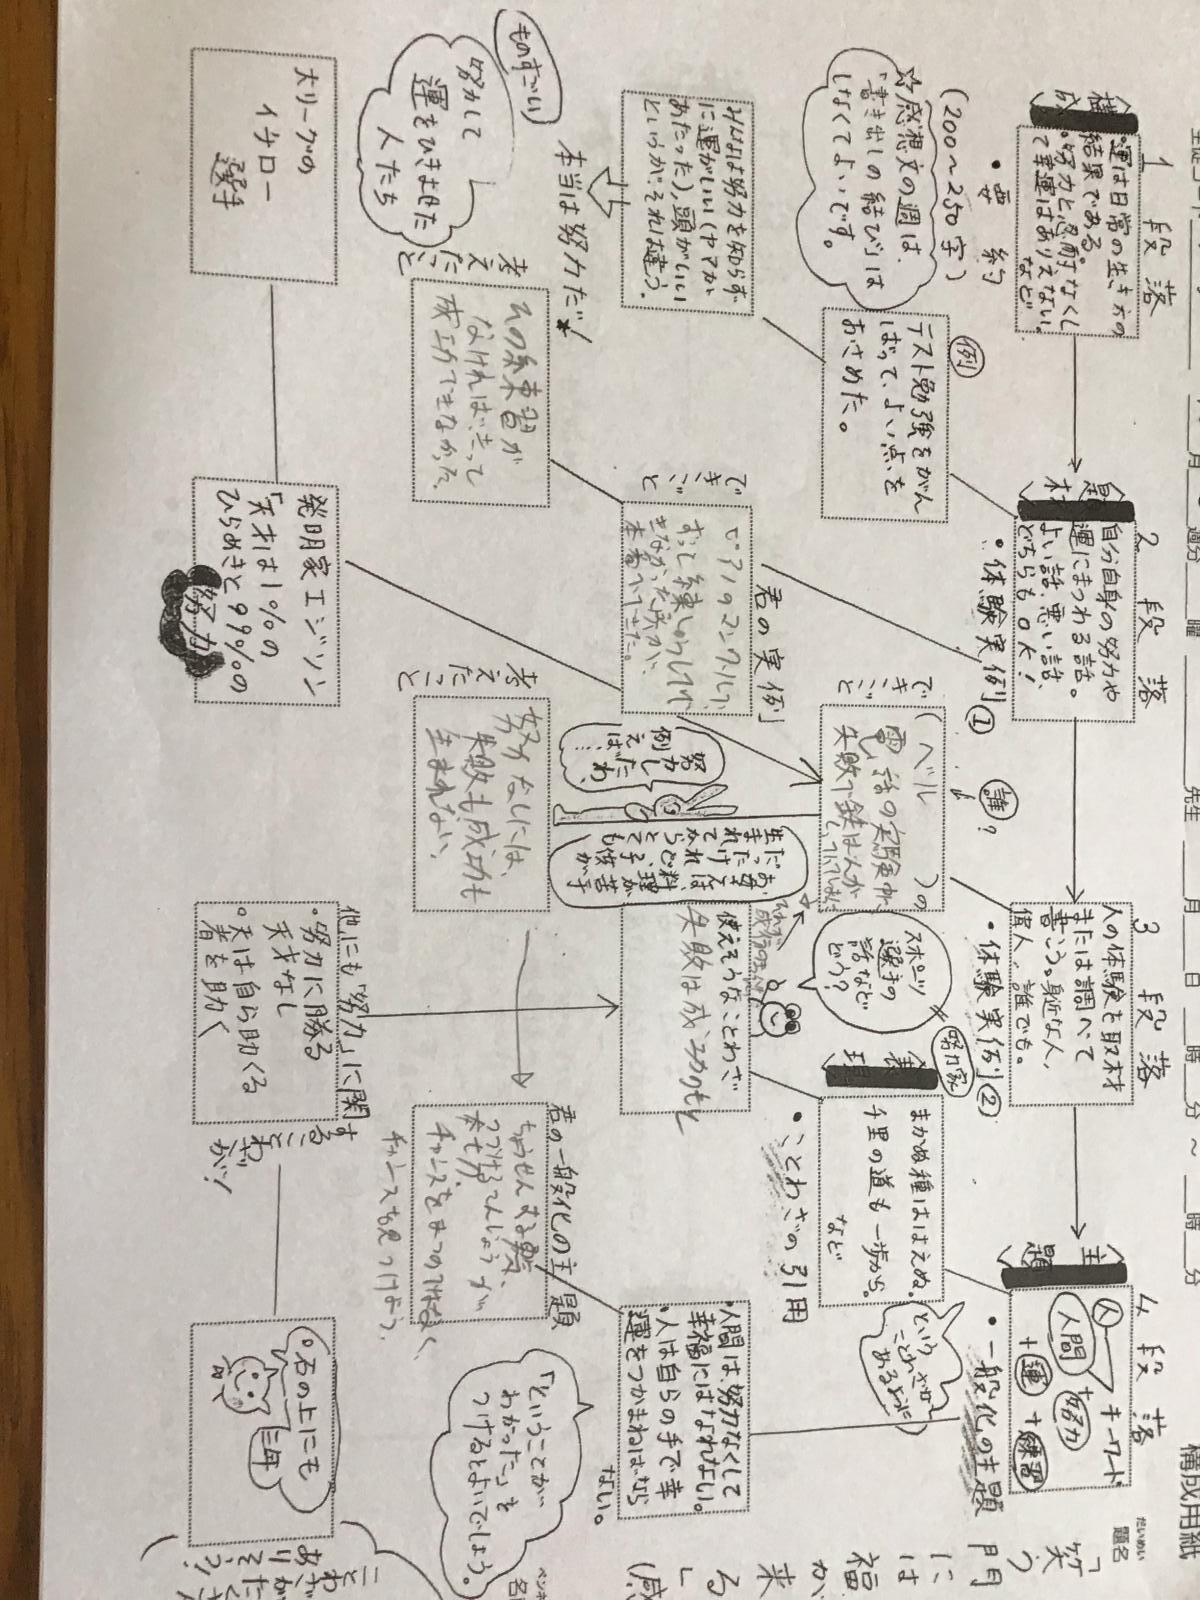 構成用紙
だいめい
題名
「笑う
門
には
福
が
来
る」
(感
生徒コード
月
週分
曜
先生
月 日 時 分 ~ 時 分
1 段落
〈構成〉
・運は日常の生き方の
結果である。
・努力と忍耐なくし
て幸運はありえない。
など
・要約
(200~250字)
☆感想文の週は、
「書き出しの結び」は
しなくてよいです。
例
テスト勉強をがん
ばって、よい点を
おさめた。
みんなは努力を知らず
に運がいい(ヤマが
あたった)、頭がいい
というが、それは違う。
本当は努力だ!
ものすごい
努力して
運をひきよせた
人たち
大リーグの
イチロー
選手
2 段落
〈題材〉
自分自身の努力や
運にまつわる話。
よい話、悪い話、
どちらもOK!
・体験実例①
君の実例
できごと
ピアノのコンクールで、
ずっと練しゅうしても
きなかった所が、
本番でできた。
考えたこと
あの練習が
なければ、きって
成功できなかった。
発明家エジソン
「天才は1%の
ひらめきと99%の
努力」
3 段落
人の体験を取材
または調べて
書こう。身近な人、
偉人、誰でも。
・体験実例②
誰?
できごと
(ベル )の
電話の実験中、
失敗で
スポーツ
選手の
話など
どう?
努力家
努力し
たわ、
例えば…
お母さんは、子供が
生まれてからとても
考えたこと
努力なしには、
失敗も成功も
生まれない。
使えそうなことわざ
失敗は成功のもと
他にも「努力」に関
することわざが!
・努力に勝る
天才なし
・天は自ら助くる
者を助く
4 段落
〈主題〉
キーワード
人
人間
+努力
+運 +練習
・一般化の主題
〈表現〉
まかぬ種ははえぬ。
千里の道も一歩から。
など
・ことわざの引用
ということわざが
あるように
・人間は、努力なくして
幸福にはなれない。
・人は自らの手で幸
運をつかまねばなら
ない。
君の一般化の主題
ちょうせんする勇気、
つづける
チャンスをまつのではなく、
チャンスを見つけよう。
「ということが
わかった」を
つけるとよいでしょう。
○石の上にも
三年
ことわざが
たくさん
ありそう?